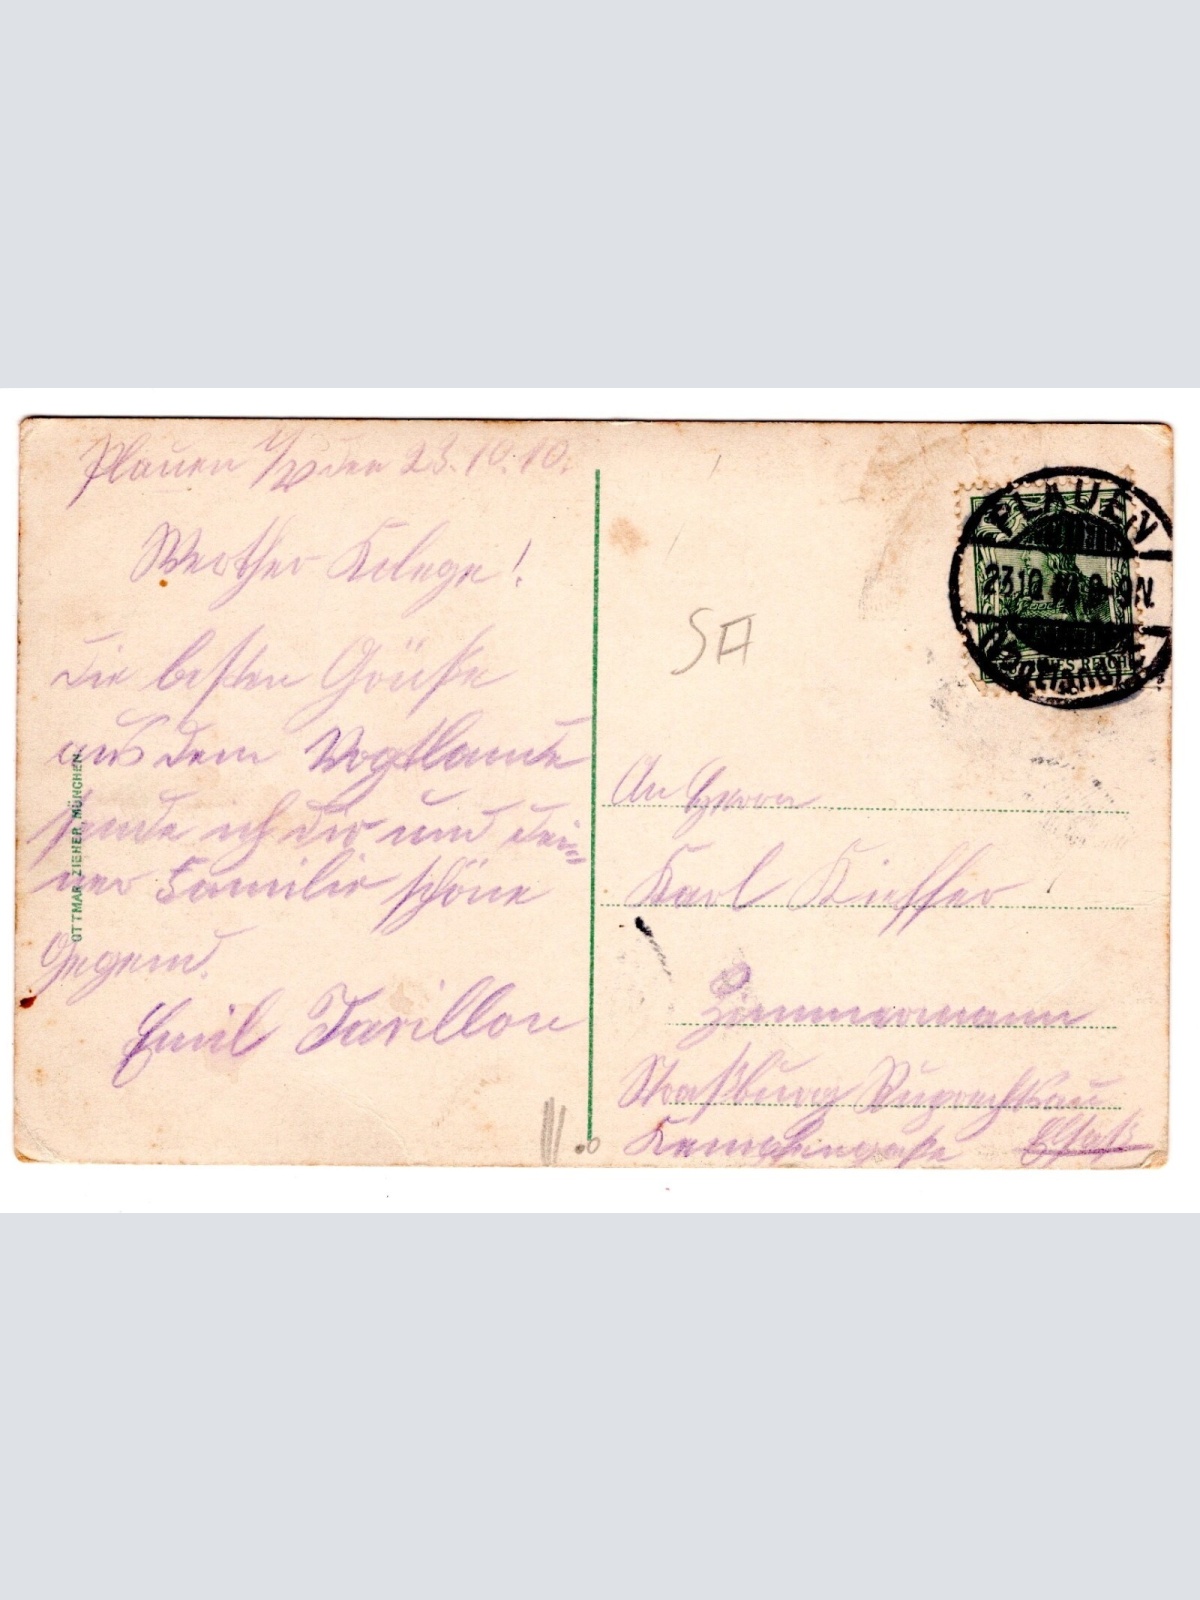 Plauen i/V den 23.10.10.
Werther Kolege!
Die besten Grüße
aus dem Vogtlande
sende ich Dir und Dei=
ner Familie schöne
Gegend.
Emil Tavillon
OTTMAR ZIEHER, MÜNCHEN
PLAUEN
23.10.10. 8-9N
(VOGTLAND)
DEUTSCHES REICH
An Herrn
Karl Kieffer
Zimmermann
Straßburg Ruprechtsau
Elsaß